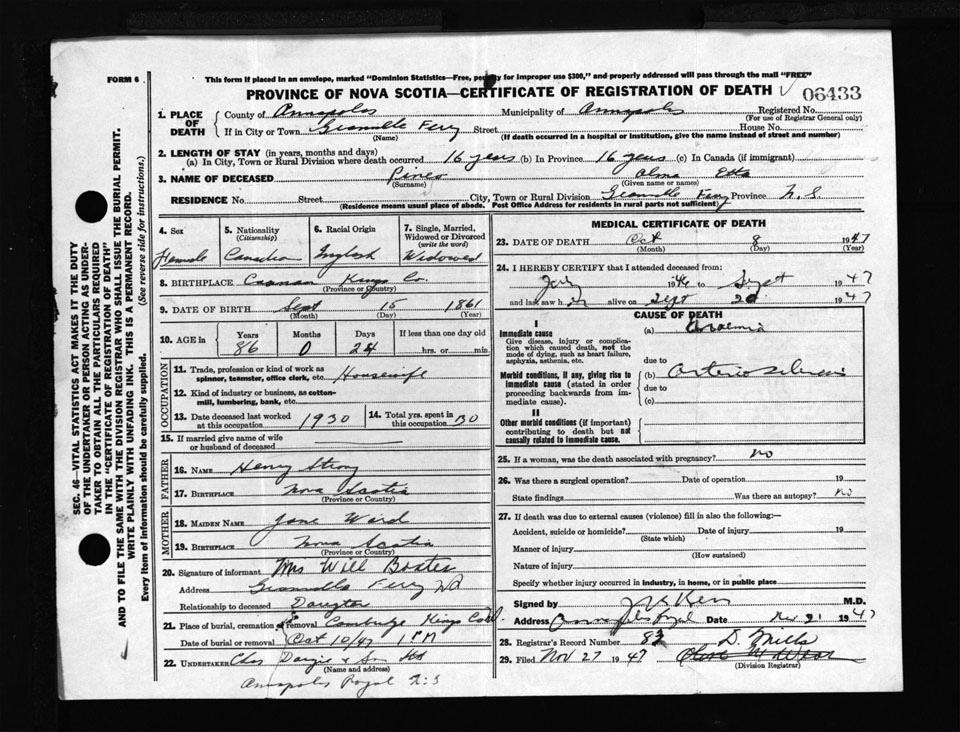 FORM 6
This form if placed in an envelope, marked "Dominion Statistics—Free, penalty for improper use $300," and properly addressed will pass through the mail "FREE"
PROVINCE OF NOVA SCOTIA—CERTIFICATE OF REGISTRATION OF DEATH 06433
1. PLACE OF DEATH
County of Annapolis Municipality of Annapolis Registered No.
(For use of Registrar General only)
If in City or Town Granville Ferry Street House No.
(Name) (If death occurred in a hospital or institution, give the name instead of street and number)
2. LENGTH OF STAY (in years, months and days)
(a) In City, Town or Rural Division where death occurred 16 years (b) In Province 16 years (c) In Canada (if immigrant)
3. NAME OF DECEASED Pineo Alma Etta
(Surname) (Given name or names)
RESIDENCE No. Street City, Town or Rural Division Granville Ferry Province N.S
(Residence means usual place of abode. Post Office Address for residents in rural parts not sufficient)
4. Sex
Female
5. Nationality
(Citizenship)
Canadian
6. Racial Origin
English
7. Single, Married, Widowed or Divorced
(write the word)
Widowed
8. BIRTHPLACE Canaan Kings Co.
(Province or Country)
9. DATE OF BIRTH Sept 15 1861
(Month) (Day) (Year)
10. AGE in
Years Months Days If less than one day old
86 0 24 hrs. or min.
OCCUPATION
11. Trade, profession or kind of work as spinner, teamster, office clerk, etc. Housewife
12. Kind of industry or business, as cotton-mill, lumbering, bank, etc.
13. Date deceased last worked at this occupation 1930
14. Total yrs. spent in this occupation 50
15. If married give name of wife or husband of deceased
FATHER
16. NAME Henry Strong
17. BIRTHPLACE Nova Scotia
(Province or Country)
MOTHER
18. MAIDEN NAME Jane Ward
19. BIRTHPLACE Nova Scotia
(Province or Country)
20. Signature of informant Mrs Will Bostes
Address Granville Ferry NS
Relationship to deceased Daughter
21. Place of burial, cremation or removal Cambridge Kings Co N.S.
Date of burial or removal Oct 10/47 1 PM
22. UNDERTAKER Chas Dargie & Son Ltd
(Name and address)
Annapolis Royal N.S
MEDICAL CERTIFICATE OF DEATH
23. DATE OF DEATH Oct 8 1947
(Month) (Day) (Year)
24. I HEREBY CERTIFY that I attended deceased from:
July 1946 to Sept 1947
and last saw her alive on Sept 20 1947
CAUSE OF DEATH
I
Immediate cause
Give disease, injury or complication which caused death, not the mode of dying, such as heart failure, asphyxia, asthenia, etc.
(a) Anaemia
due to
Morbid conditions, if any, giving rise to immediate cause (stated in order proceeding backwards from immediate cause).
(b) Arterio sclerosis
due to
(c)
II
Other morbid conditions (if important) contributing to death but not causally related to immediate cause.
25. If a woman, was the death associated with pregnancy? no
26. Was there a surgical operation? Date of operation 19
State findings Was there an autopsy? no
27. If death was due to external causes (violence) fill in also the following:—
Accident, suicide or homicide? Date of injury 19
(State which)
Manner of injury
(How sustained)
Nature of injury
Specify whether injury occurred in industry, in home, or in public place
Signed by Kerr M.D.
Address Annapolis Royal Date Nov 21 1947
28. Registrar's Record Number 82 D. Mills
29. Filed Nov 27 1947
(Division Registrar)
SEC. 46—VITAL STATISTICS ACT MAKES IT THE DUTY
OF THE UNDERTAKER OR PERSON ACTING AS UNDERTAKER TO OBTAIN ALL THE PARTICULARS REQUIRED
IN THE "CERTIFICATE OF REGISTRATION OF DEATH"
AND TO FILE THE SAME WITH THE DIVISION REGISTRAR WHO SHALL ISSUE THE BURIAL PERMIT.
WRITE PLAINLY WITH UNFADING INK. THIS IS A PERMANENT RECORD.
Every item of information should be carefully supplied. (See reverse side for instructions.)